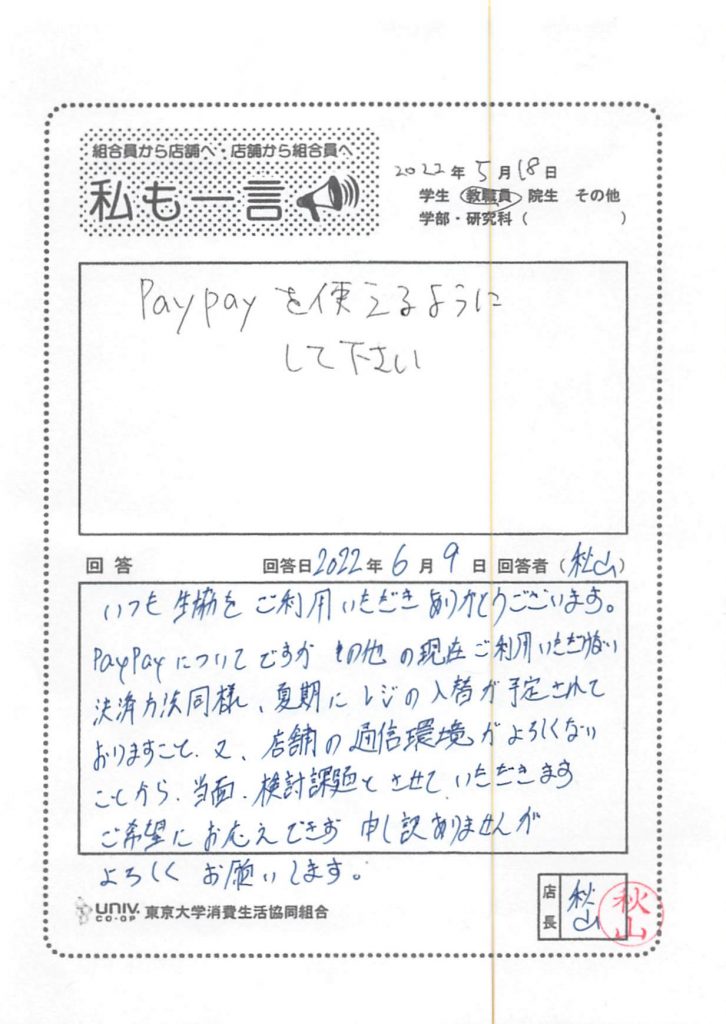 組合員から店舗へ・店舗から組合員へ
私も一言
2022年5月18日
学生 教職員 院生 その他
学部・研究科（ ）
Paypayを使えるように
して下さい
回答 回答日2022年6月9日 回答者（秋山）
いつも生協をご利用いただきありがとうございます。
PayPayについてですが その他の現在ご利用いただけない
決済方法同様、夏期にレジの入替が予定されて
おりますこと、又、店舗の通信環境がよろしくない
ことから、当面、検討課題とさせていただきます
ご希望にお応えできず 申し訳ありませんが
よろしくお願いします。
UNIV. CO-OP 東京大学消費生活協同組合
店長 秋山
秋山